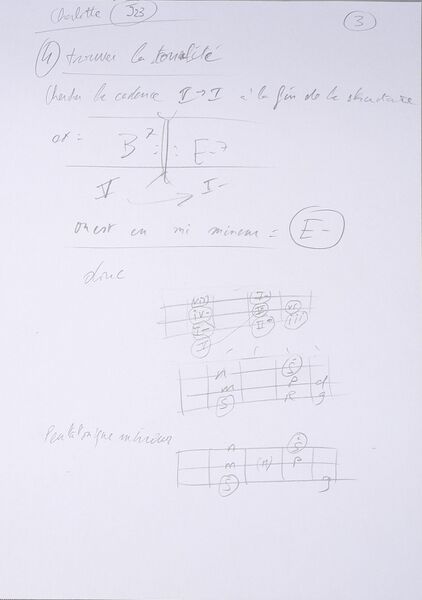 Charlotte J23
3
4) trouver la tonalité
Chercher la cadence V → I à la fin de la structure
ex = B7 E-7
V I-
on est en mi mineur = E-
donc
VII I- VI
IV- V III
I- II
V
n S
m P d
S R g
Pentatonique mineure
n S
m (n) P
S g